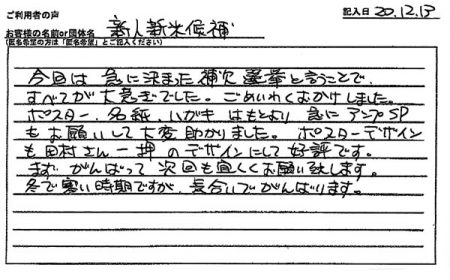 ご利用者の声
記入日 20.12.13
お客様の名前or団体名 新人新米候補
(匿名希望の方は「匿名希望」とご記入ください)
今回は 急に決まった 補欠 選挙と言うことで、
すべてが 大急ぎでした。ごめいわくおかけしました。
ポスター、名紙、ハガキ はもとより 急に アンプSP
もお願いして大変助かりました。ポスターデザイン
も 田村さん一押のデザインにして好評です。
まだ がんばって 次回も宜しくお願い致します。
冬で寒い時期ですが、長合いでがんばります。